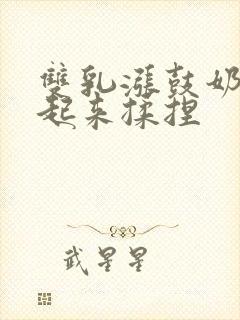 雙乳漲鼓奶
起来揉捏
武星星